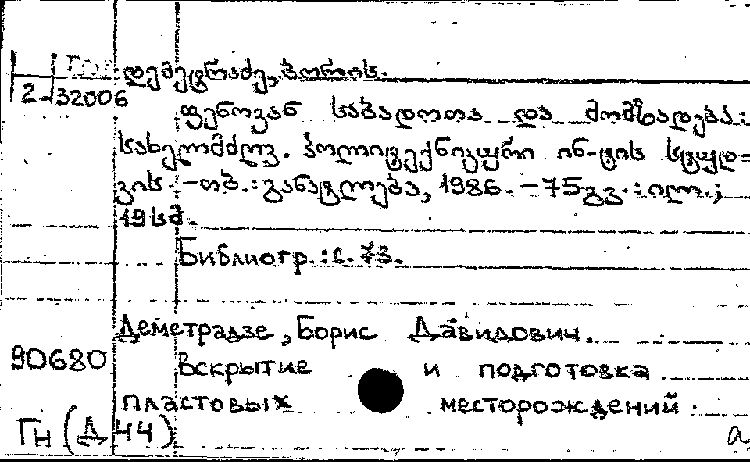 დემეტრაძე, ბორის.
2-32006
ფენოვან საბადოთა და მომზადება:
სახელმძღვ. პოლიტექნიკური ინ-ტის სტუდ=
ვის. - თბ.: განათლება, 1986. - 75 გვ.: ილ.;
19 სმ.
Библиогр.: с. 73.
Деметрадзе, Борис Давидович.
90680 Вскрытие и подготовка
пластовых месторождений.
Гн (Д 44) а